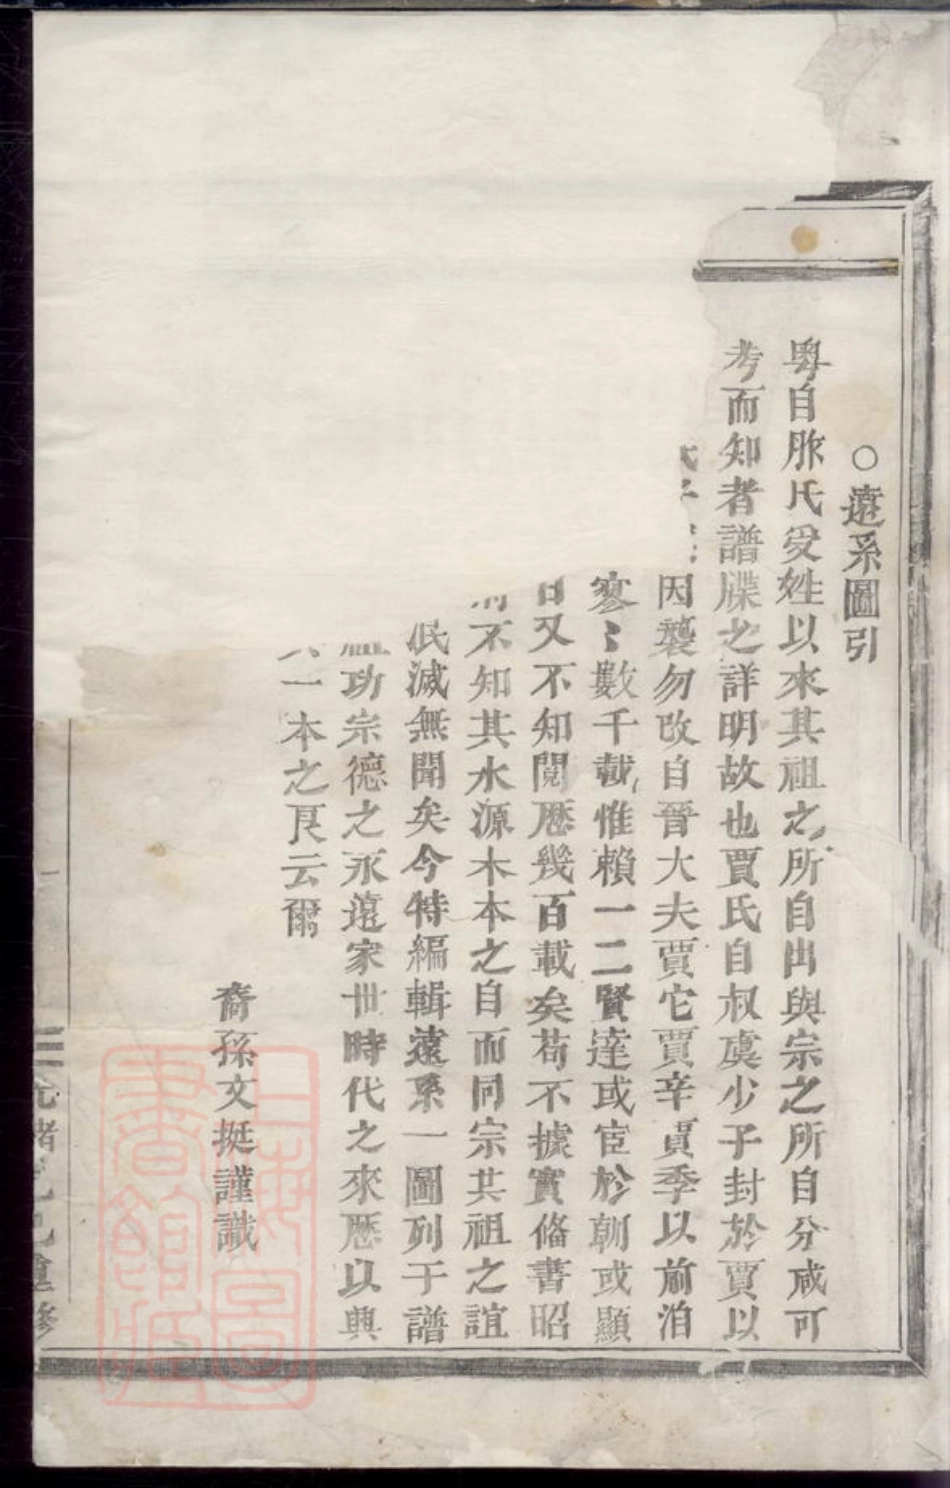 ○遠系圖引
粵自胙氏受姓以來其祖之所自出與宗之所自分咸可
考而知者譜牒之詳明故也賈氏自叔虞少子封於賈以
因襲勿改自晉大夫賈它賈辛賈季以前洎
寥〻數千載惟賴一二賢達或宦於朝或顯
又不知閱歷幾百載矣苟不據實俻書昭
不知其水源木本之自而同宗共祖之誼
泯滅無聞矣今特編輯遠系一圖列于譜
祖功宗德之永遠家世時代之來歷以興
一本之良云爾
裔孫文挺謹識
光緒乙巳重修
上海圖書館藏